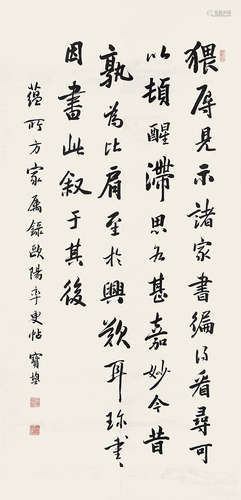 猥辱見示諸家書編得看尋可
以頓醒滯思為甚嘉妙今昔
孰為比肩至於興歎耳珍書
因書此叙于其後
蘊所方家属録歐陽率更帖 寶